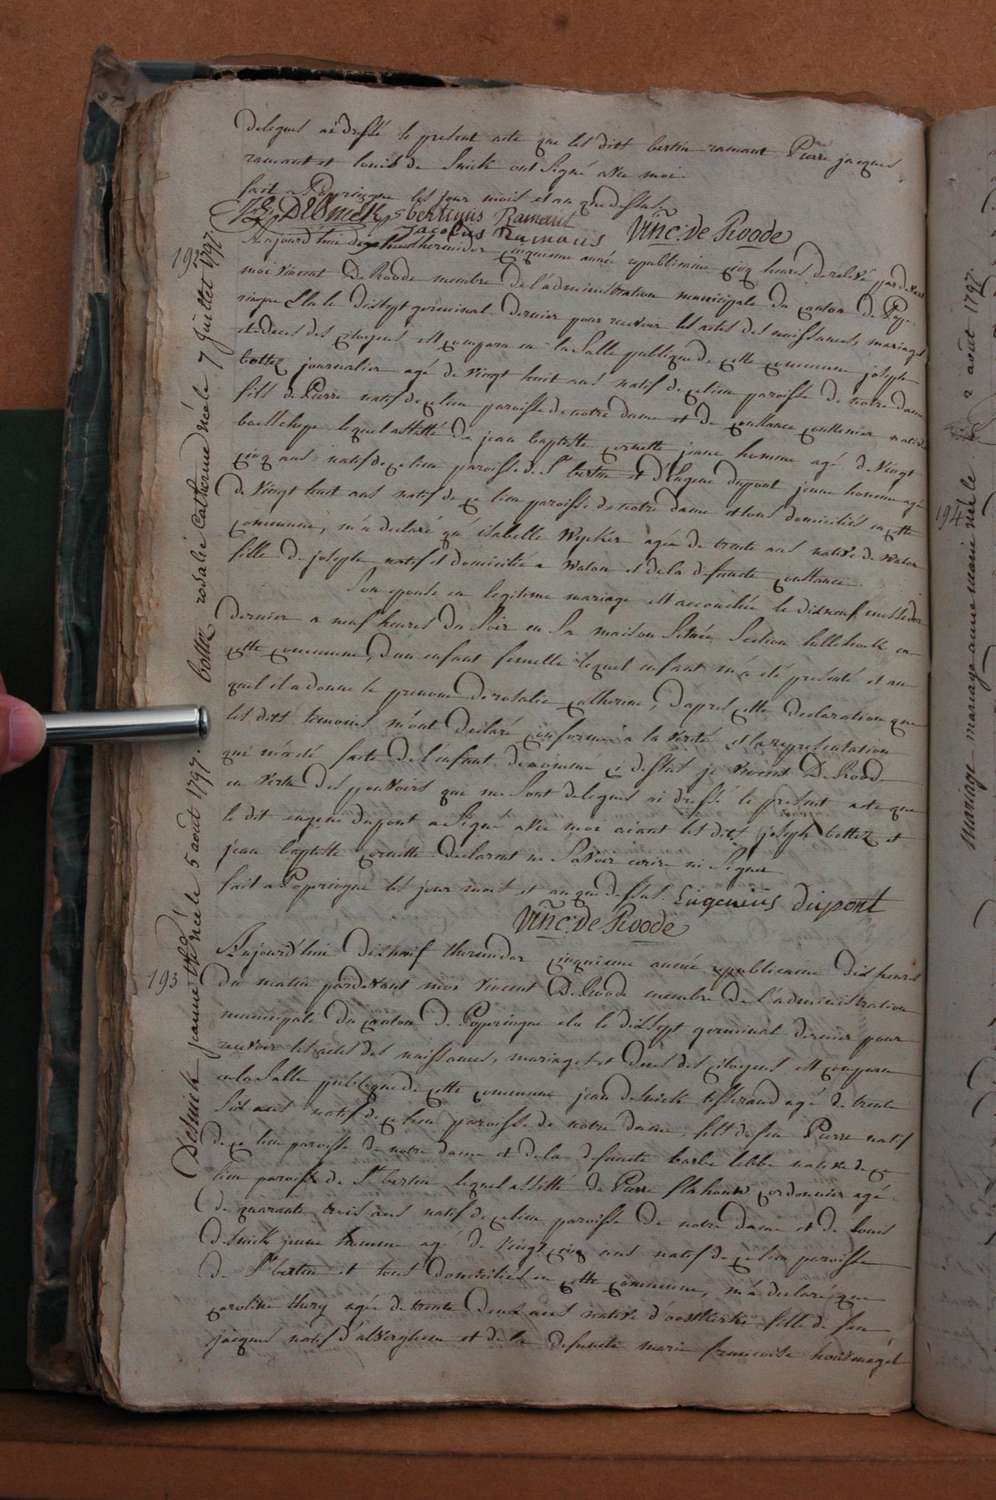 delegués ai dressé le present acte que les ditt bertin ramaut Pierre jacques
ramaut et louis de Snick ont signé avec moi
fait a Poperingue les jour mois et an que dessus
DeSnick bertinus Ramaut
jacobus Ramaut Vinc. de Roode
192
Aujourd'hui dix huit thermidor cinquieme année republicaine cinq heures de relevé pardevant
moi vincent De Roode membre de l'administration municipale du canton de Pope-
ringue Elu le dixsept germinal dernier pour recevoir les actes des naissances, mariages
et deces des citoyens est comparu en la salle publique de cette commune joseph
bottez journalier agé de vingt huit ans natif de ce lieu paroisse de notre dame
fils de Pierre natif de ce lieu paroisse de notre dame et de constance
boesschepe lequel assisté de jean baptiste cornette jeune homme agé de vingt
cinq ans natif de ce lieu paroisse de St bertin et d'Eugene dupont jeune homme agé
de vingt huit ans natif de ce lieu paroisse de notre dame et tous domiciliés en cette
commune, m'a declaré qu'isabelle Wycker agée de trente ans native de Watou
fille de joseph natif et domicilié a Watou et de la defuncte constance
Son epouse en legitime mariage est accouchée le dixneuf messidor
dernier a neuf heures du Soir en Sa maison Scituée Section en
cette commune, d'un enfant femelle lequel enfant m'a eté presenté et au
quel il a donné le prenom de rosalie catherine, d'apres cette declaration que
les ditt temoins m'ont declaré conforme a la verité et la representation
qui m'a eté faite de l'enfant denommé ci dessus je vincent De Roode
en vertu des pouvoirs qui me Sont delegués ai dressé le present acte que
le dit eugene dupont a Signé avec moi aiant les dits joseph bottez et
jean baptiste cornette declaront ne Savoir ecrire ni Signer
fait a Poperingue les jour mois et an que dessus. Eugenius dupont
Vinc. de Roode
193
Aujourd'hui dixhuit thermidor cinquieme année republicaine dix heures
du matin pardevant moi vincent De Roode membre de l'administration
municipale du canton de Poperingue elu le dixsept germinal dernier pour
recevoir les actes des naissances, mariages et deces des citoyens est comparu
en la Salle publique de cette commune jean deSnick tisserand agé de trente
Six ans natif de ce lieu paroisse de notre dame, fils de feu Pierre natif
de ce lieu paroisse de notre dame et de la defuncte barbe lebbe native de ce
lieu paroisse de St bertin lequel assisté de Pierre flahouw cordonnier agé
de quarante trois ans natif de ce lieu paroisse de notre dame et de louis
deSnick jeune homme agé de vingt cinq ans natif de ce lieu paroisse
de St bertin et tous domiciliés en cette commune, m'a declaré que
caroline thery agée de trente deux ans native d'oostkerke fille de feu
jacques natif d'alveringhem et de la defuncte marie francoise
bottez rosalie Catherine née le 7 juillet 1797
DeSnick jeanne née le 5 aout 1797.
194
mariage marie née le 2 aout 1797